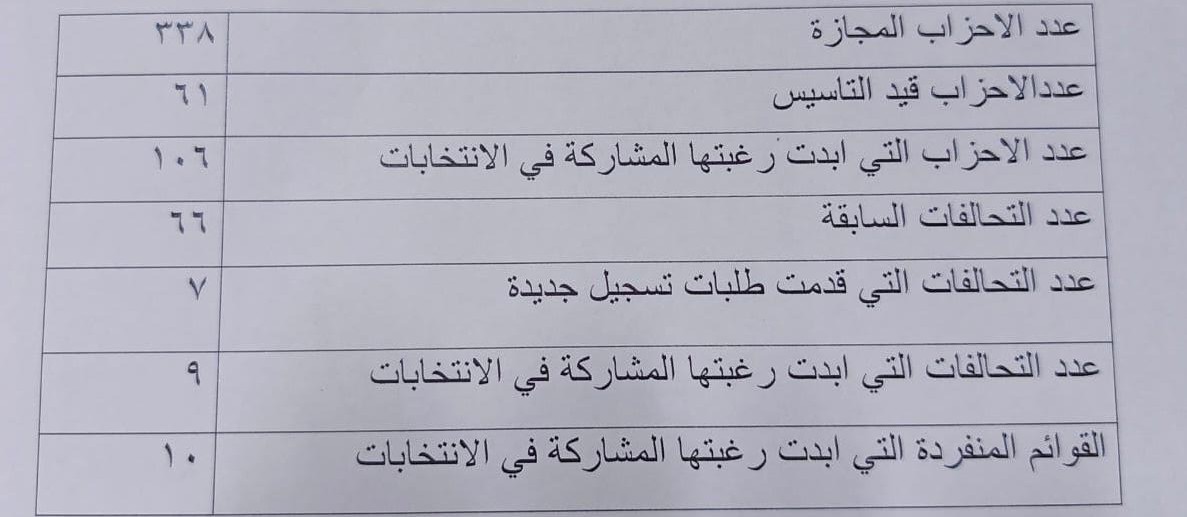 عدد الاحزاب المجازة ٣٣٨
عددالاحزاب قيد التاسيس ٦١
عدد الاحزاب التي ابدت رغبتها المشاركة في الانتخابات ١٠٦
عدد التحالفات السابقة ٦٦
عدد التحالفات التي قدمت طلبات تسجيل جديدة ٧
عدد التحالفات التي ابدت رغبتها المشاركة في الانتخابات ٩
القوائم المنفردة التي ابدت رغبتها المشاركة في الانتخابات ١٠